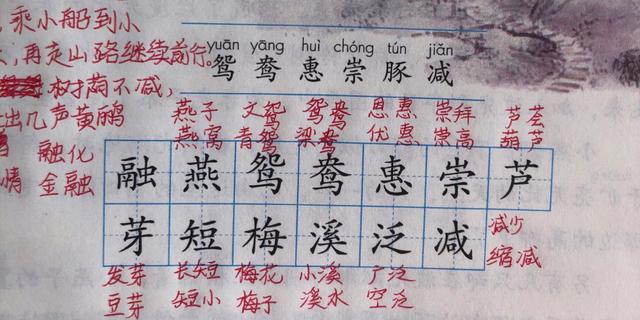 乘小船到小
再走山路继续前行。
树荫不减,
出几声黄鹂
yuān yāng huì chóng tún jiǎn
鸳 鸯 惠 崇 豚 减
燕子 文鸳 鸳鸯 恩惠 崇拜 芦荟
燕窝 青鸳 梁鸯 优惠 崇高 葫芦
融化
情 金融
融 燕 鸳 鸯 惠 崇 芦
芽 短 梅 溪 泛 减
减少
缩减
发芽 长短 梅花 小溪 广泛
豆芽 短小 梅子 溪水 空泛